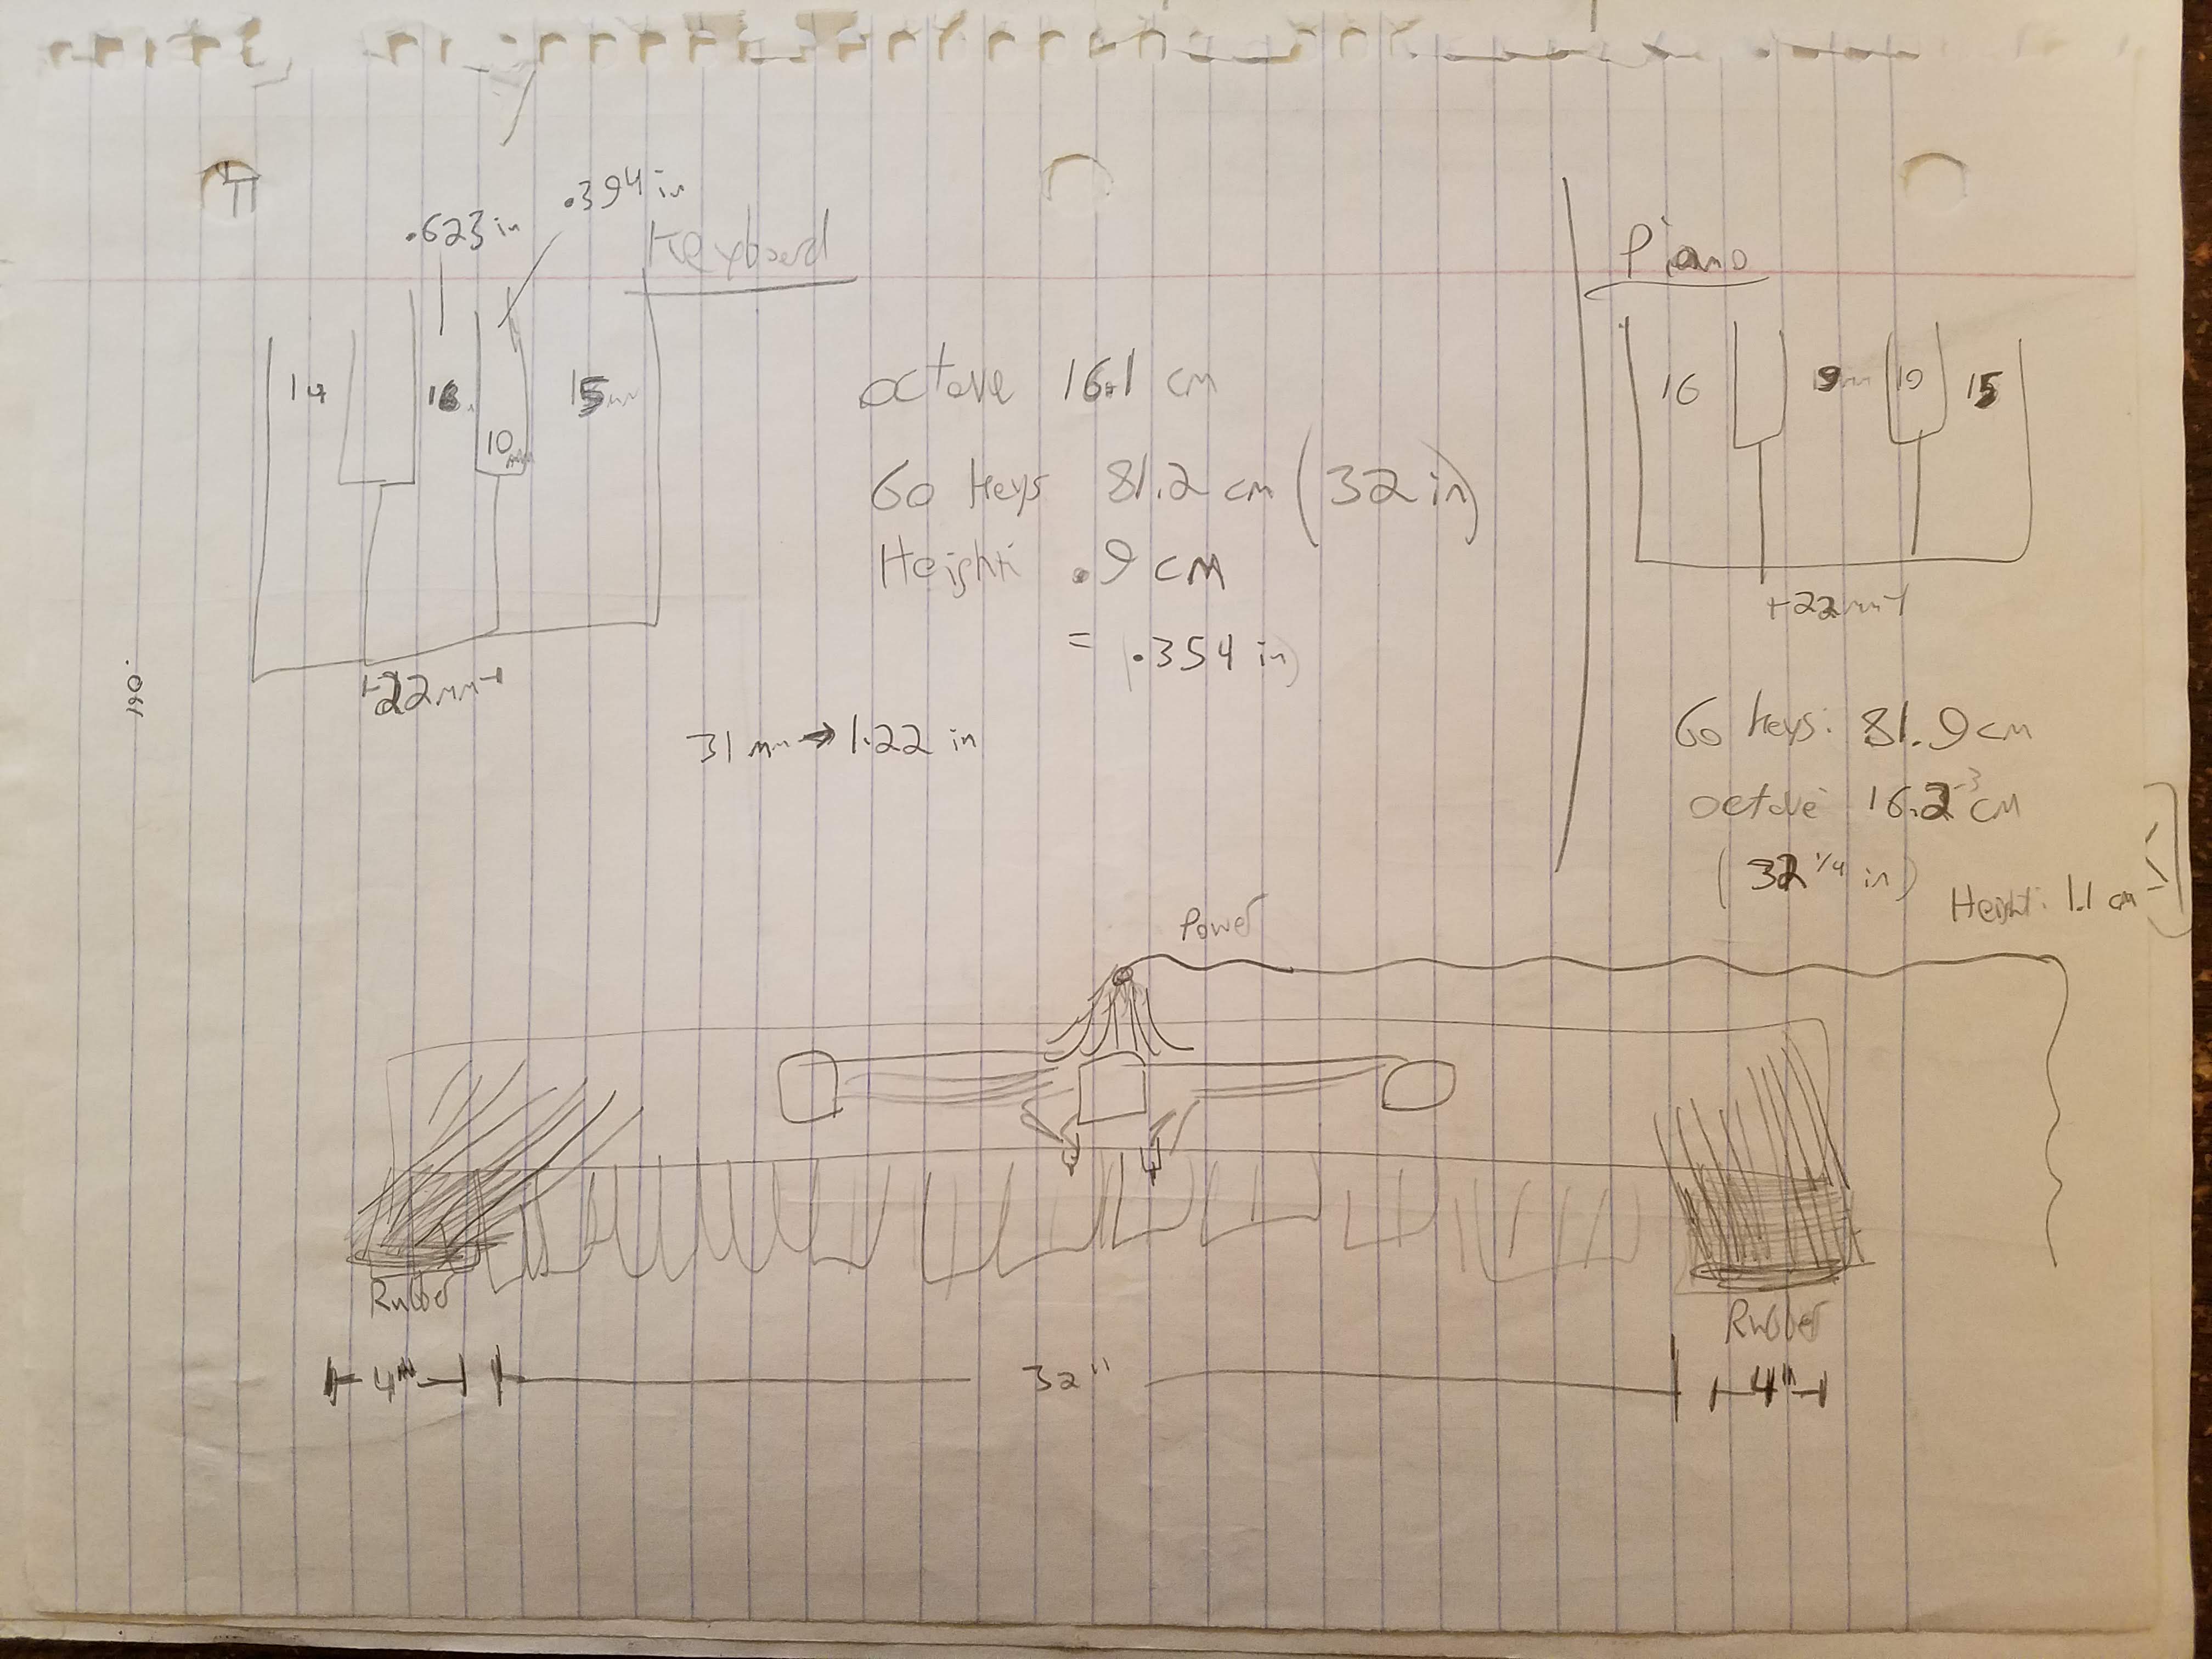 .623 in
.394 in
Keyboard
14
15mm
10mm
22mm
octave 16.1 cm
60 keys 81.2 cm (32 in)
Height: .9 cm
= (.354 in)
31 mm → 1.22 in
Piano
16
9mm
10
15
22mm
60 keys: 81.9 cm
octave 16.2-3 cm
(32 1/4 in)
Height: 1.1 cm
Power
Rubber
Rubber
4in
32"
4in